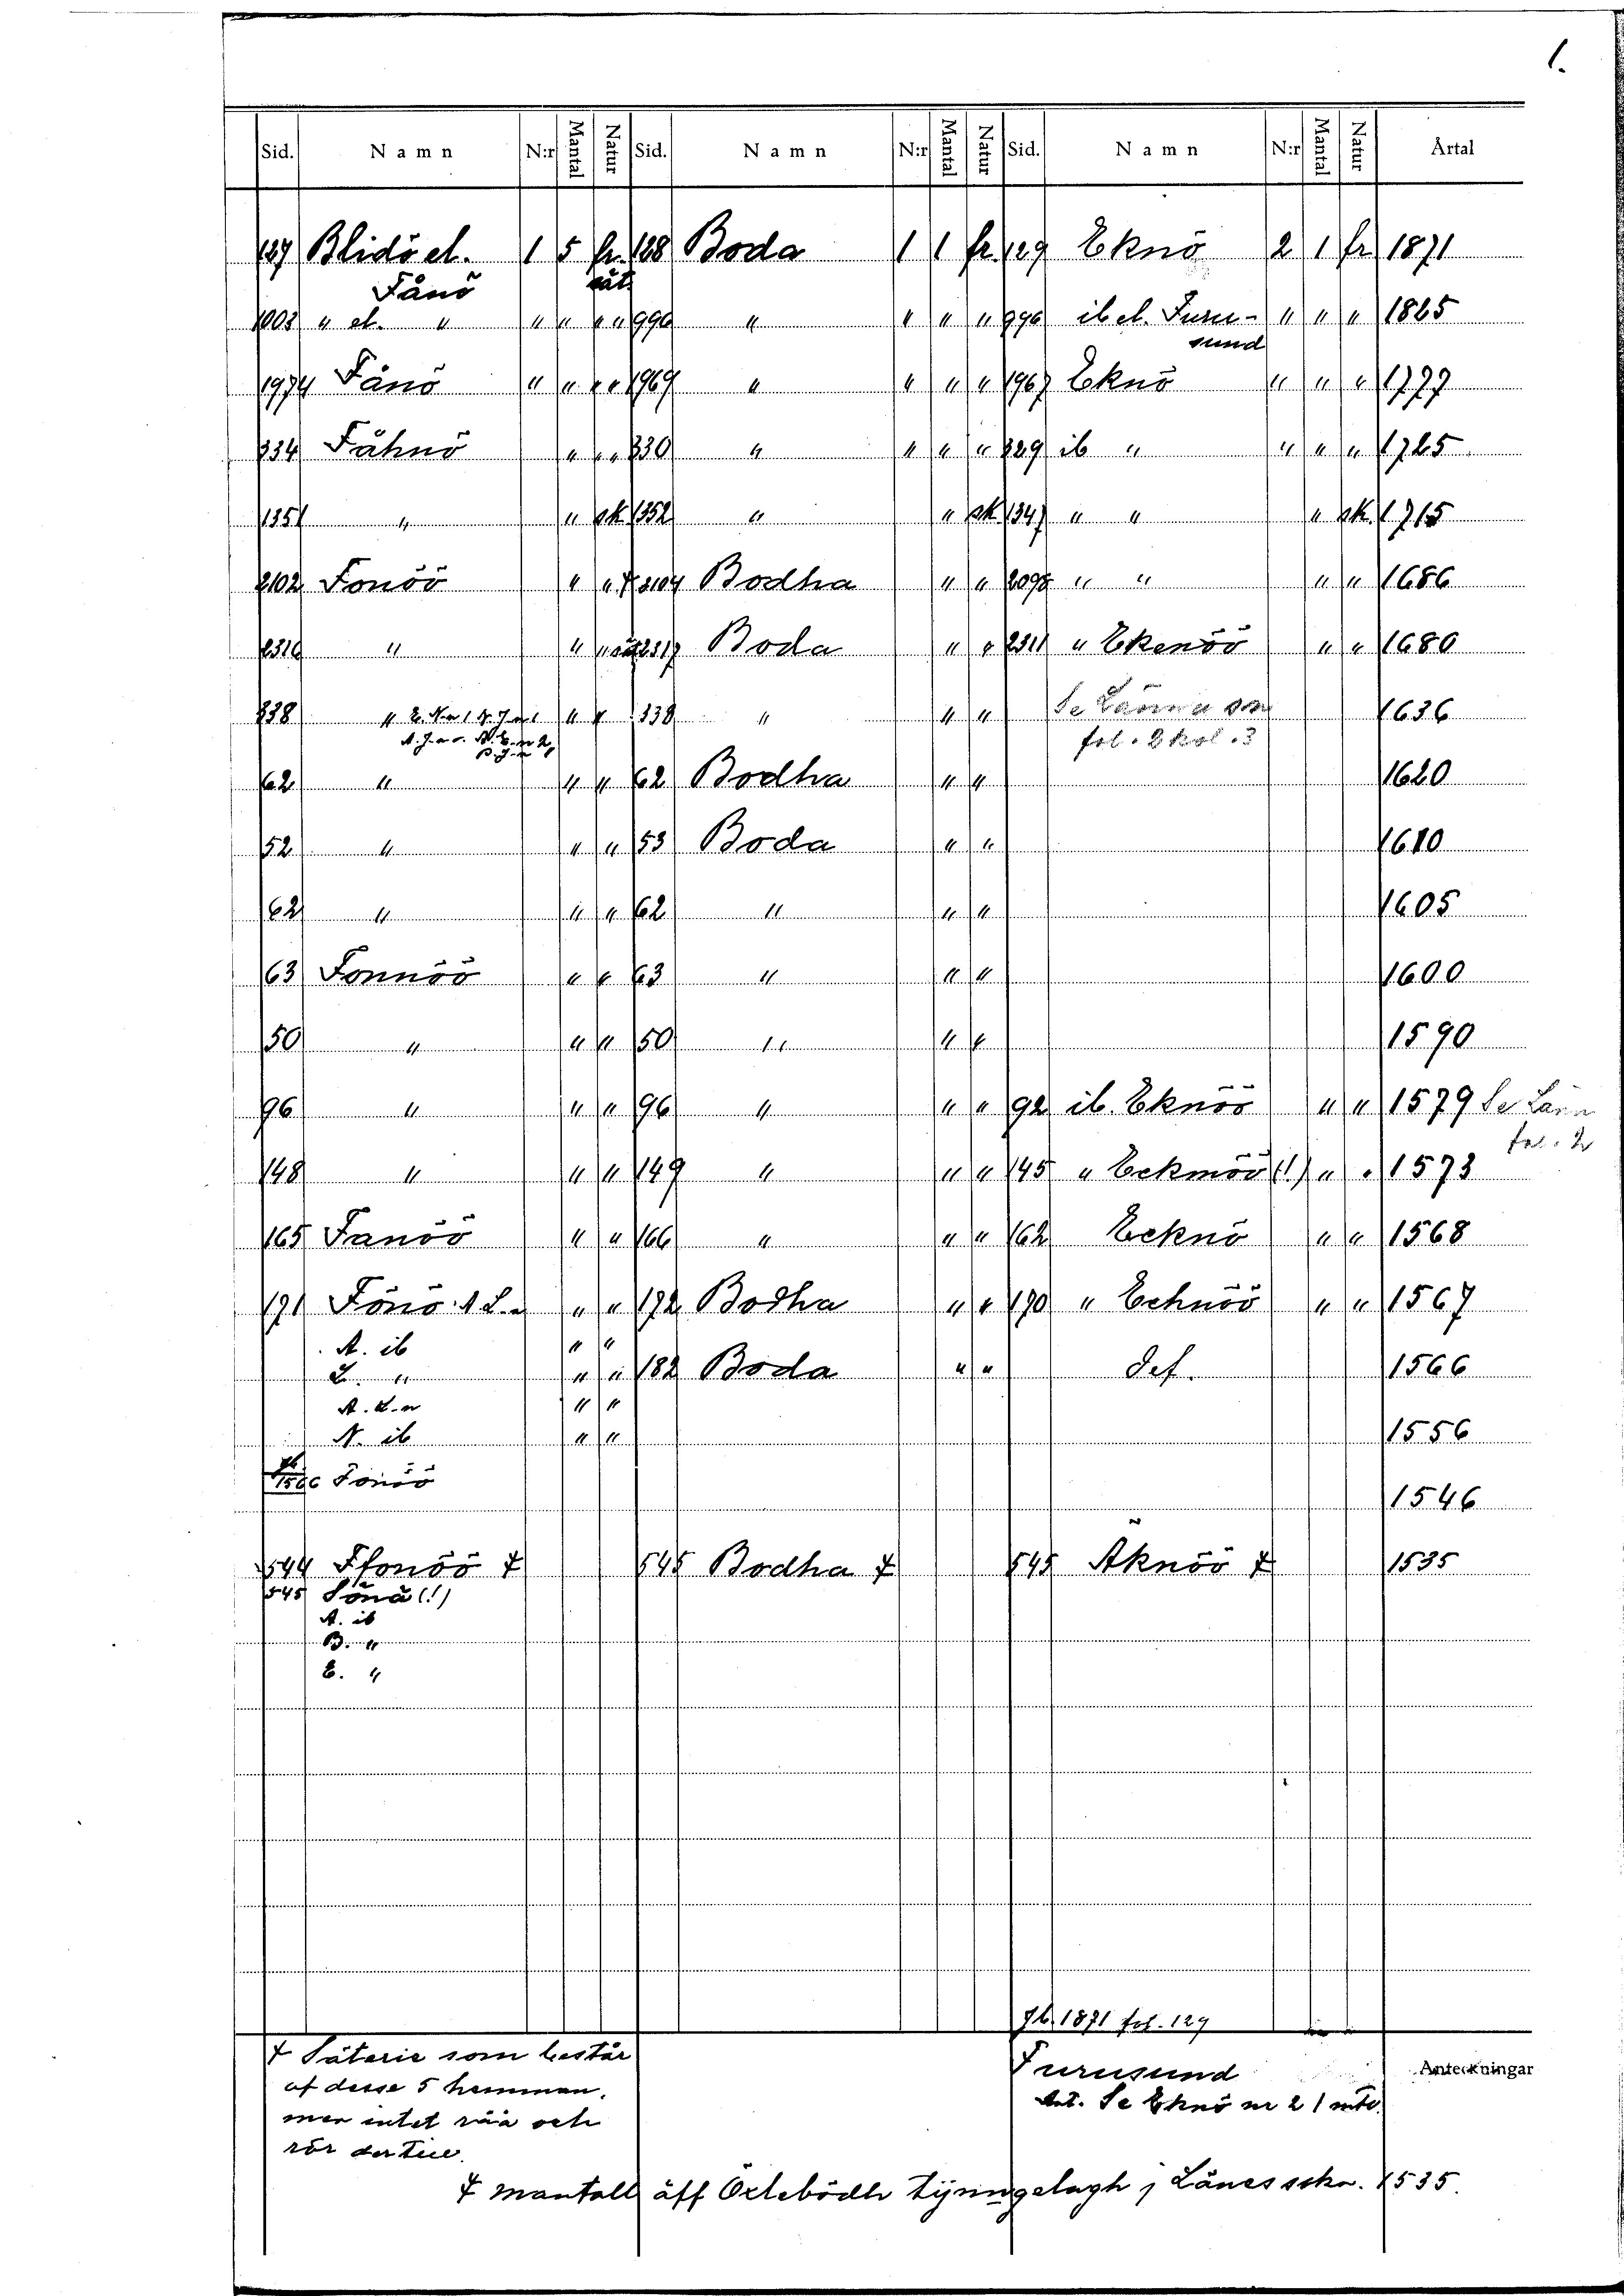 1.
Sid. Namn N:r Mantal Natur Sid. Namn N:r Mantal Natur Sid. Namn N:r Mantal Natur Årtal
127 Blidö el. 1 5 fr. 128 Boda 1 1 fr. 129 Eknö 2 1 fr 1871
Fånö sät.
1003 " el. " " " " " 996 " " " " 996 ib el. Furu- " " " 1865
sund
1974 Fånö " " " " 1969 " " " " 1967 Eknö " " " 1777
334 Fåhnö " " " 330 " " " " 329 ib " " " " 1725
1351 " " sk 1352 " " sk 1347 " " " sk. 1715
2102 Fonöö " " ⨍ 2104 Bodha " " 2098 " " " " 1686
2316 " " " sät 2317 Boda " " 2311 " Ekenöö " " 1680
338 " " " 338 " " " Se Länna sn 1636
fol. 2 kol. 3
62 " " " 62 Bodha " " 1620
52 " " " 53 Boda " " 1610
62 " " " 62 " " " 1605
63 Fonnöö " " 63 " " " 1600
50 " " " 50 " " " 1590
96 " " " 96 " " " 92 ib. Eknöö " " 1579 Se Län
fol. 2
148 " " " 149 " " " 145 " Eekmöö (!) " " 1573
165 Fanöö " " 166 " " " 162 Eeknö " " 1568
171 Fönö " " 172 Bodha " " 170 " Echnöö " " 1567
A. ib " "
L. " " " 182 Boda " " def. 1566
A. L-n " "
N. ib " " 1556
1566 Fonöö
1546
544 Ffonöö ⨍ 545 Bodha ⨍ 545 Åknöö ⨍ 1535
545 Sönä (!)
A. ib
B. "
E. "
Jb. 1871 fol. 129
⨍ Säterie som består
af desse 5 hemman.
men intet råå och
rör der till.
Furusund
Ant. Se Eknö nr 2 1 mtl.
Anteckningar
⨍ mantall äff Örlebodh tijnngelagh j Länes sckn. 1535.